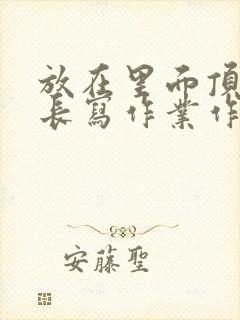 放在里而頂
長寫作業作
安藤聖